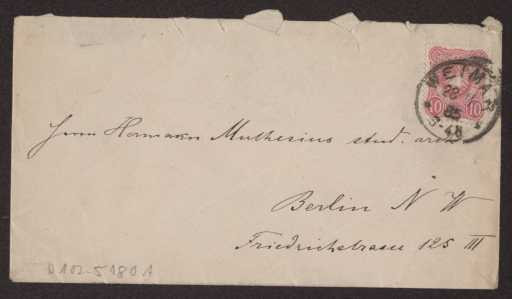 WEIMAR
28
85
5-4N
10 10
Herrn Hermann Muthesius stud. arch
Berlin N W
Friedrichstrasse 125 III
D 102-5180 1